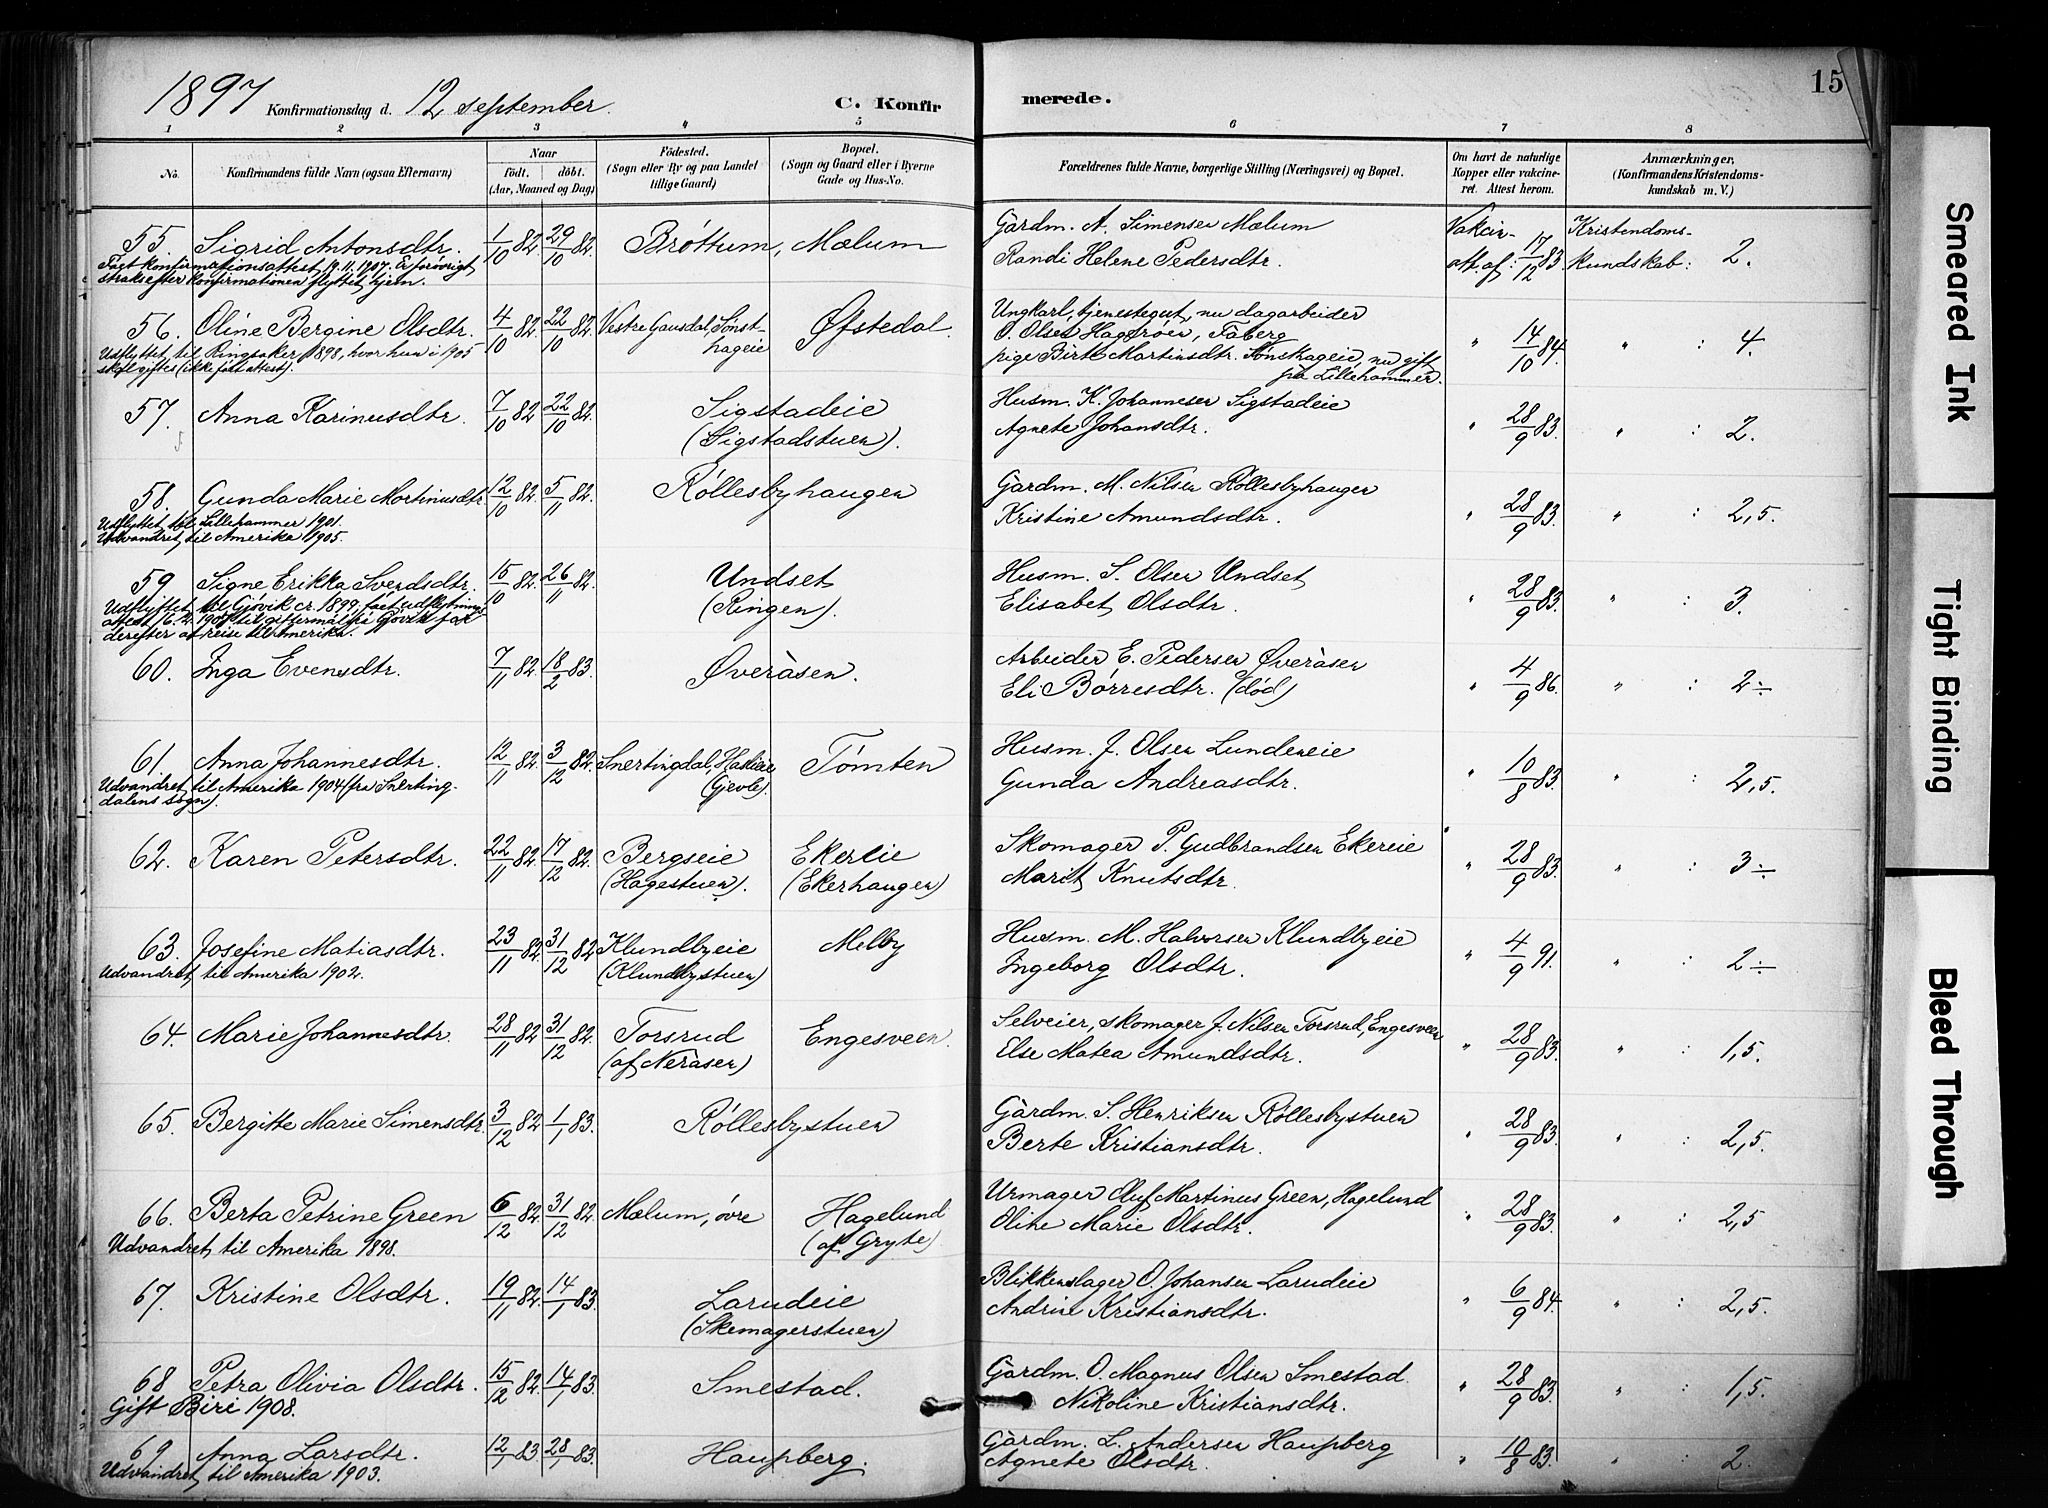 1897 Konfirmationsdag d. 12 september. C. Konfirmerede. 15
1 2 3 4 5 6 7 8
No. Konfirmandens fulde Navn (ogsaa Efternavn) Naar födt. döbt. (Aar, Maaned og Dag) Födested. (Sogn eller By og paa Landet tillige Gaard) Bopæl. (Sogn og Gaard eller i Byerne Gade og Hus-No. Forældrenes fulde Navne, borgerlige Stilling (Næringsvei) og Bopæl. Om havt de naturlige Kopper eller vakcineret. Attest herom. Anmærkninger, (Konfirmandens Kristendomskundskab m. V.)
55. Sigrid Antonsdtr. 1/10 82. 29/10 82. Brøttum, Mælum Gårdm. A. Simensen Mælum Vakcin- Kristendoms-
Randi Helene Pedersdtr. att. af: 17/12 83 kundskab: 2.
Fået konfirmationsattest 19.11.1907. Er forøvrigt
straks efter konfirmationen flyttet hjem.
56. Oline Bergine Olsdtr. 4/10 82. 22/10 82. Vestre Gausdal, Sønst- Øfstedal. Ungkarl, tjenestegut, nu dagarbeider
hageie O. Olsen Hagerøen, Fåberg
pige Birte Martinsdtr. Sønsthageie, nu gift " 14/10 84. " 4.
på Lillehammer.
Udflyttet til Ringsaker 1898, hvor hun i 1905
skal giftes (ikke fået attest).
57. Anna Karinusdtr. 7/10 82. 22/10 82. Sigstadeie Husm. K. Johannesen Sigstadeie
(Sigstadstuen). Agnete Johansdtr. " 28/9 83. " : 2.
58. Gunda Marie Martinusdtr. 12/10 82. 5/11 82. Røllesbyhaugen Gårdm. M. Nilsen Røllesbyhaugen
Kristine Amundsdtr. " 28/9 83. " : 2,5.
Udflyttet til Lillehammer 1901.
Udvandret til Amerika 1905.
59 Signe Erikka Svendsdtr. 15/10 82. 26/11 82. Undset Husm. S. Olsen Undset
(Ringen). Elisabet Olsdtr. " 28/9 83. " : 3.
Udflyttet til Gjøvik cr. 1899. fået udflytnings
derefter at reise til Amerika.
60. Inga Evensdtr. 7/11 82. 18/2 83. Øveråsen. Arbeider E. Pedersen Øveråsen
Eli Børresdtr. (død) " 4/9 86. " : 2÷
61. Anna Johannesdtr. 12/11 82. 3/12 82. Snertingdal, Haslieie Tømten Husm. J. Olsen Lundeneie
(Gjevle). Gunda Andreasdtr. " 10/8 83. " : 2,5.
Udvandret til Amerika 1904 (fra Snerting-
dalens sogn).
62. Karen Petersdtr. 22/11 82. 17/12 82. Bergseie Ekereie Skomager P. Gudbrandsen Ekereie
(Hagestuen). (Ekerhaugen) Marit Knutsdtr. " 28/9 83. " : 3÷
63. Josefine Matiasdtr. 23/11 82. 31/12 82 Klundbyeie Melby Husm. M. Halvorsen Klundbyeie
(Klundbystuen) Ingeborg Olsdtr. " 4/9 91. " : 2÷
Udvandret til Amerika 1902.
64. Marie Johannesdtr. 28/11 82. 31/12 82. Torsrud Engesveen. Selveier, skomager J. Nilsen Torsrud, Engesveen
(af Neråsen) Else Matea Amundsdtr. " 28/9 83. " : 1,5.
65. Bergitte Marie Simensdtr. 3/12 82 1/1 83. Røllesbystuen Gårdm. S. Henriksen Røllesbystuen
Berte Kristiansdtr. " 28/9 83. " : 2,5.
66. Berta Petrine Green 6/12 82. 31/12 82. Mælum, øvre Hagelund Urmager Oluf Martinus Green, Hagelund
(af Gryte) Oline Marie Olsdtr. " 28/9 83. " : 2,5
Udvandret til Amerika 1898.
67. Kristine Olsdtr. 19/11 82. 14/1 83. Larudeie Blikkenslager O. Johansen Larudeie
(Skomagerstuen) Andrine Kristiansdtr. " 6/9 84. " : 2,5.
68 Petra Olivia Olsdtr. 15/12 82. 14/1 83. Smestad. Gårdm. O. Magnus Olsen Smestad.
Nikoline Kristiansdtr. " 28/9 83. " : 1,5.
Gift Biri 1908.
69 Anna Larsdtr. 12/1 83. 28/1 83. Haupberg. Gårdm. L. Andersen Haupberg
Agnete Olsdtr. " 10/8 83. " : 2.
Udvandret til Amerika 1903.
Smeared Ink
Tight Binding
Bleed Through